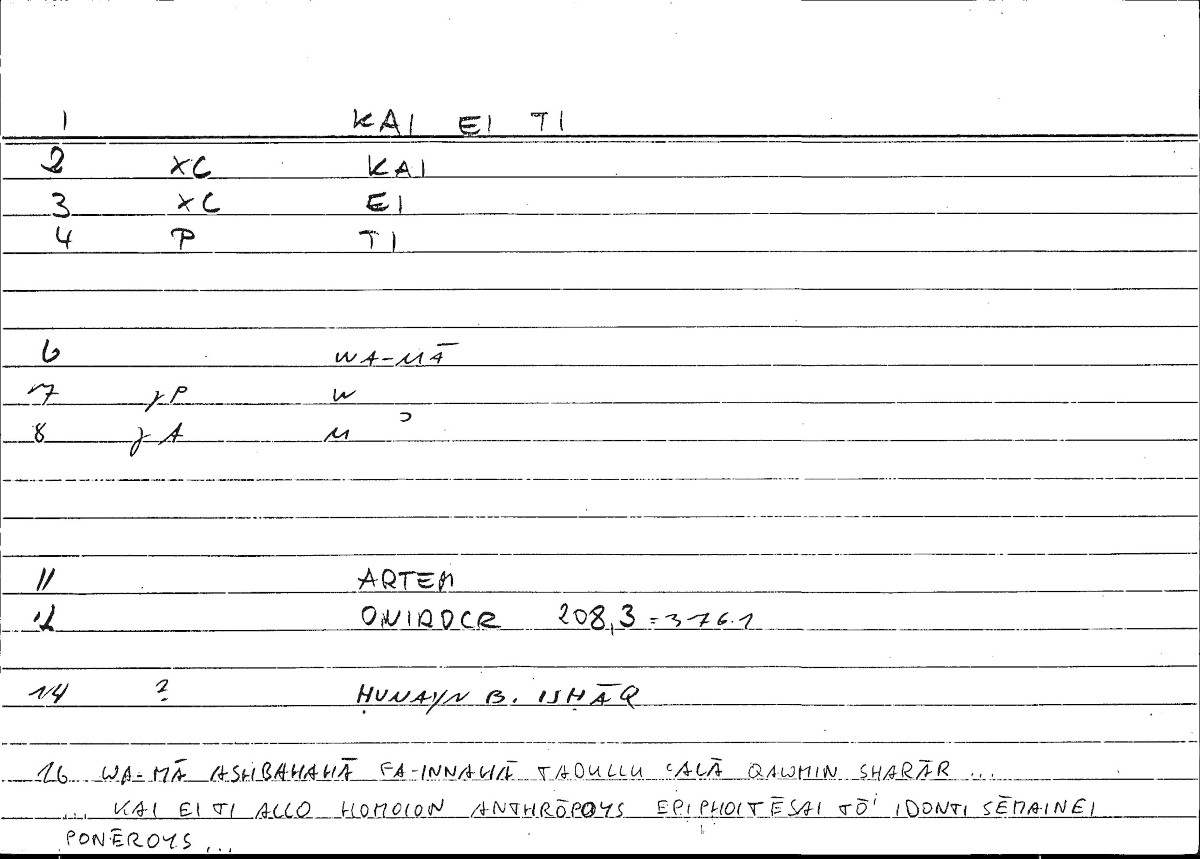 1 KAI EI TI
2 XC KAI
3 XC EI
4 P TI
6 WA-MĀ
7 γP W
8 γA M ʾ
11 ARTEM
12 ONIROCR 208,3 = 376.1
14 ? ḤUNAYN B. ISḤĀQ
16 WA-MĀ ASHBAHAHĀ FA-INNAHĀ TADULLU ʿALĀ QAWMIN SHARĀR ...
... KAI EI TI ALLO HOMOION ANTHRŌPOYS EPIPHOITĒSAI TŌ' IDONTI SĒMAINEI
PONĒROYS ...